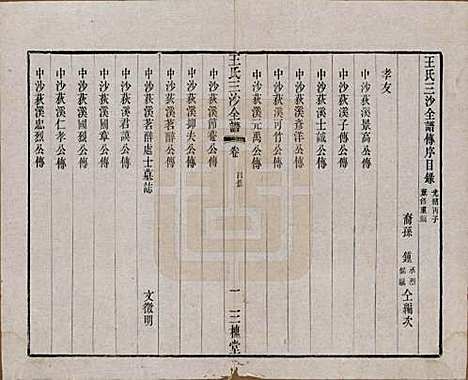 王氏三沙全譜傳序目錄
光緒丙子
重修續編
裔孫 鍾 仝編次
孝友
中沙荻溪景高公傳
中沙荻溪子修公傳
中沙荻溪士誠公傳
中沙荻溪彥洋公傳
中沙荻溪可竹公傳
中沙荻溪元萬公傳
王氏三沙全譜
卷
目錄
一
三槐堂
中沙荻溪公傳
中沙荻溪抑夫公傳
中沙荻溪茗醉公傳
中沙荻溪茗醉處士墓誌 文徵明
中沙荻溪君謨公傳
中沙荻溪國章公傳
中沙荻溪國穩公傳
中沙荻溪仁孝公傳
中沙荻溪公傳